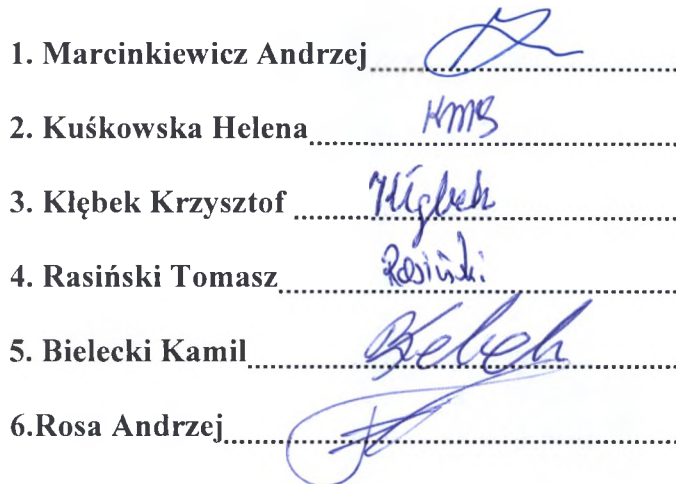 1. Marcinkiewicz Andrzej
2. Kuśkowska Helena
3. Kłębek Krzysztof Kłębek
4. Rasiński Tomasz Rasiński
5. Bielecki Kamil
6.Rosa Andrzej